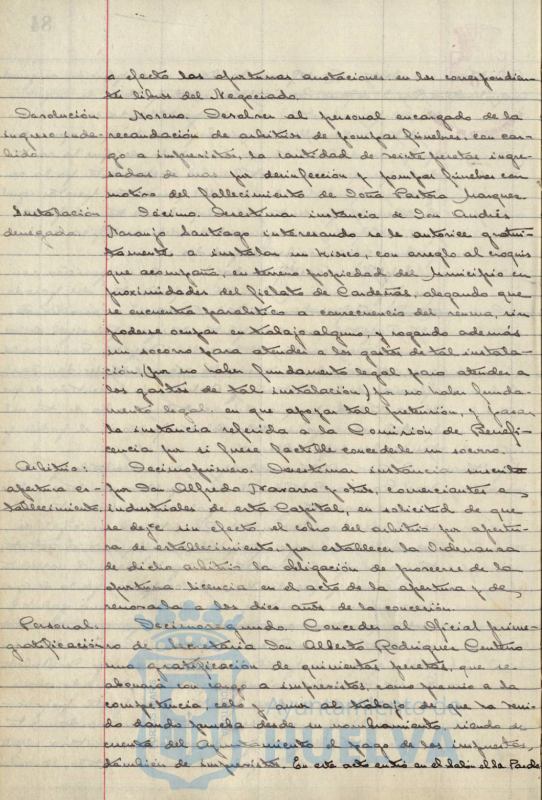 a efecto las oportunas anotaciones en los correspondien-
tes libros del Negociado.
Devolución
ingreso inde-
bido.
Noveno. Devolver al personal encargado de la
recaudación de arbitrios de pompas fúnebres, con car-
go a imprevistos, la cantidad de veinte pesetas ingre-
sadas de mas por desinfección y pompas fúnebres con
motivo del fallecimiento de Doña Pastora Marquez
Instalación
denegada.
Décimo. Desestimar instancia de Don Andrés
Naranjo Santiago interesando se le autorice gratui-
tamente a instalar un kiosco, con arreglo al croquis
que acompaña, en terreno propiedad del Municipio en
proximidades del fielato de Cardeñas, alegando que
se encuentra paralitico a consecuencia del reuma, sin
poderse ocupar en trabajo alguno, y rogando además
un socorro para atender a los gastos de tal instala-
ción, (por no haber fundamento legal para atender a
los gastos de tal instalación) por no haber funda-
mento legal en que apoyar tal pretensión, y pasar
la instancia referida a la Comisión de Benefi-
cencia por si fuese factible concederle un socorro.
Arbitrio:
apertura es-
tablecimiento.
Decimoprimero. Desestimar instancia suscrita
por Don Alfredo Navarro y otros, comerciantes e
industriales de esta Capital, en solicitud de que
se deje sin efecto el cobro del arbitrio por apertu-
ra de establecimiento, por establecer la Ordenanza
de dicho arbitrio la obligación de proveerse de la
oportuna licencia en el acto de la apertura y de
renovarla a los diez años de la concesión.
Personal:
gratificación
Decimosegundo. Conceder al Oficial prime-
ro de Secretaria Don Alberto Rodriguez Centeno
una gratificación de quinientas pesetas, que se
abonará con cargo a imprevistos, como premio a la
competencia, celo y amor al trabajo de que ha veni-
do dando prueba desde su nombramiento, siendo de
cuenta del Ayuntamiento el pago de los impuestos,
también de imprevistos. En este acto entró en el Salón el Sr. Pardo
Ayuntamiento de
HUELVA